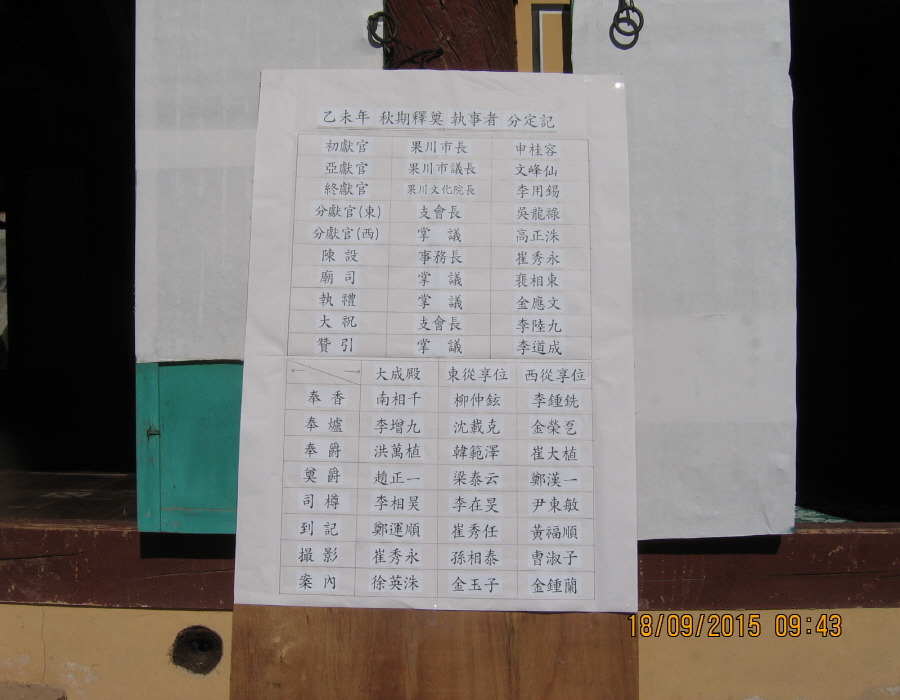 乙未年 秋期釋奠 執事者 分定記
初獻官 果川市長 申桂容
亞獻官 果川市議長 文峰仙
終獻官 果川文化院長 李用錫
分獻官(東) 支會長 吳龍祿
分獻官(西) 掌議 高正洙
陳設 事務長 崔秀永
廟司 掌議 裵相東
執禮 掌議 金應文
大祝 支會長 李陸九
贊引 掌議 李道成
大成殿 東從享位 西從享位
奉香 南相千 柳仲鉉 李鍾銑
奉爐 李增九 沈載克 金榮
奉爵 洪萬植 韓範澤 崔大植
奠爵 趙正一 梁泰云 鄭漢一
司樽 李相昊 李在旻 尹東敏
到記 鄭運順 崔秀任 黃福順
撮影 崔秀永 孫相泰 曺淑子
案內 徐英洙 金玉子 金鍾蘭
18/09/2015 09:43